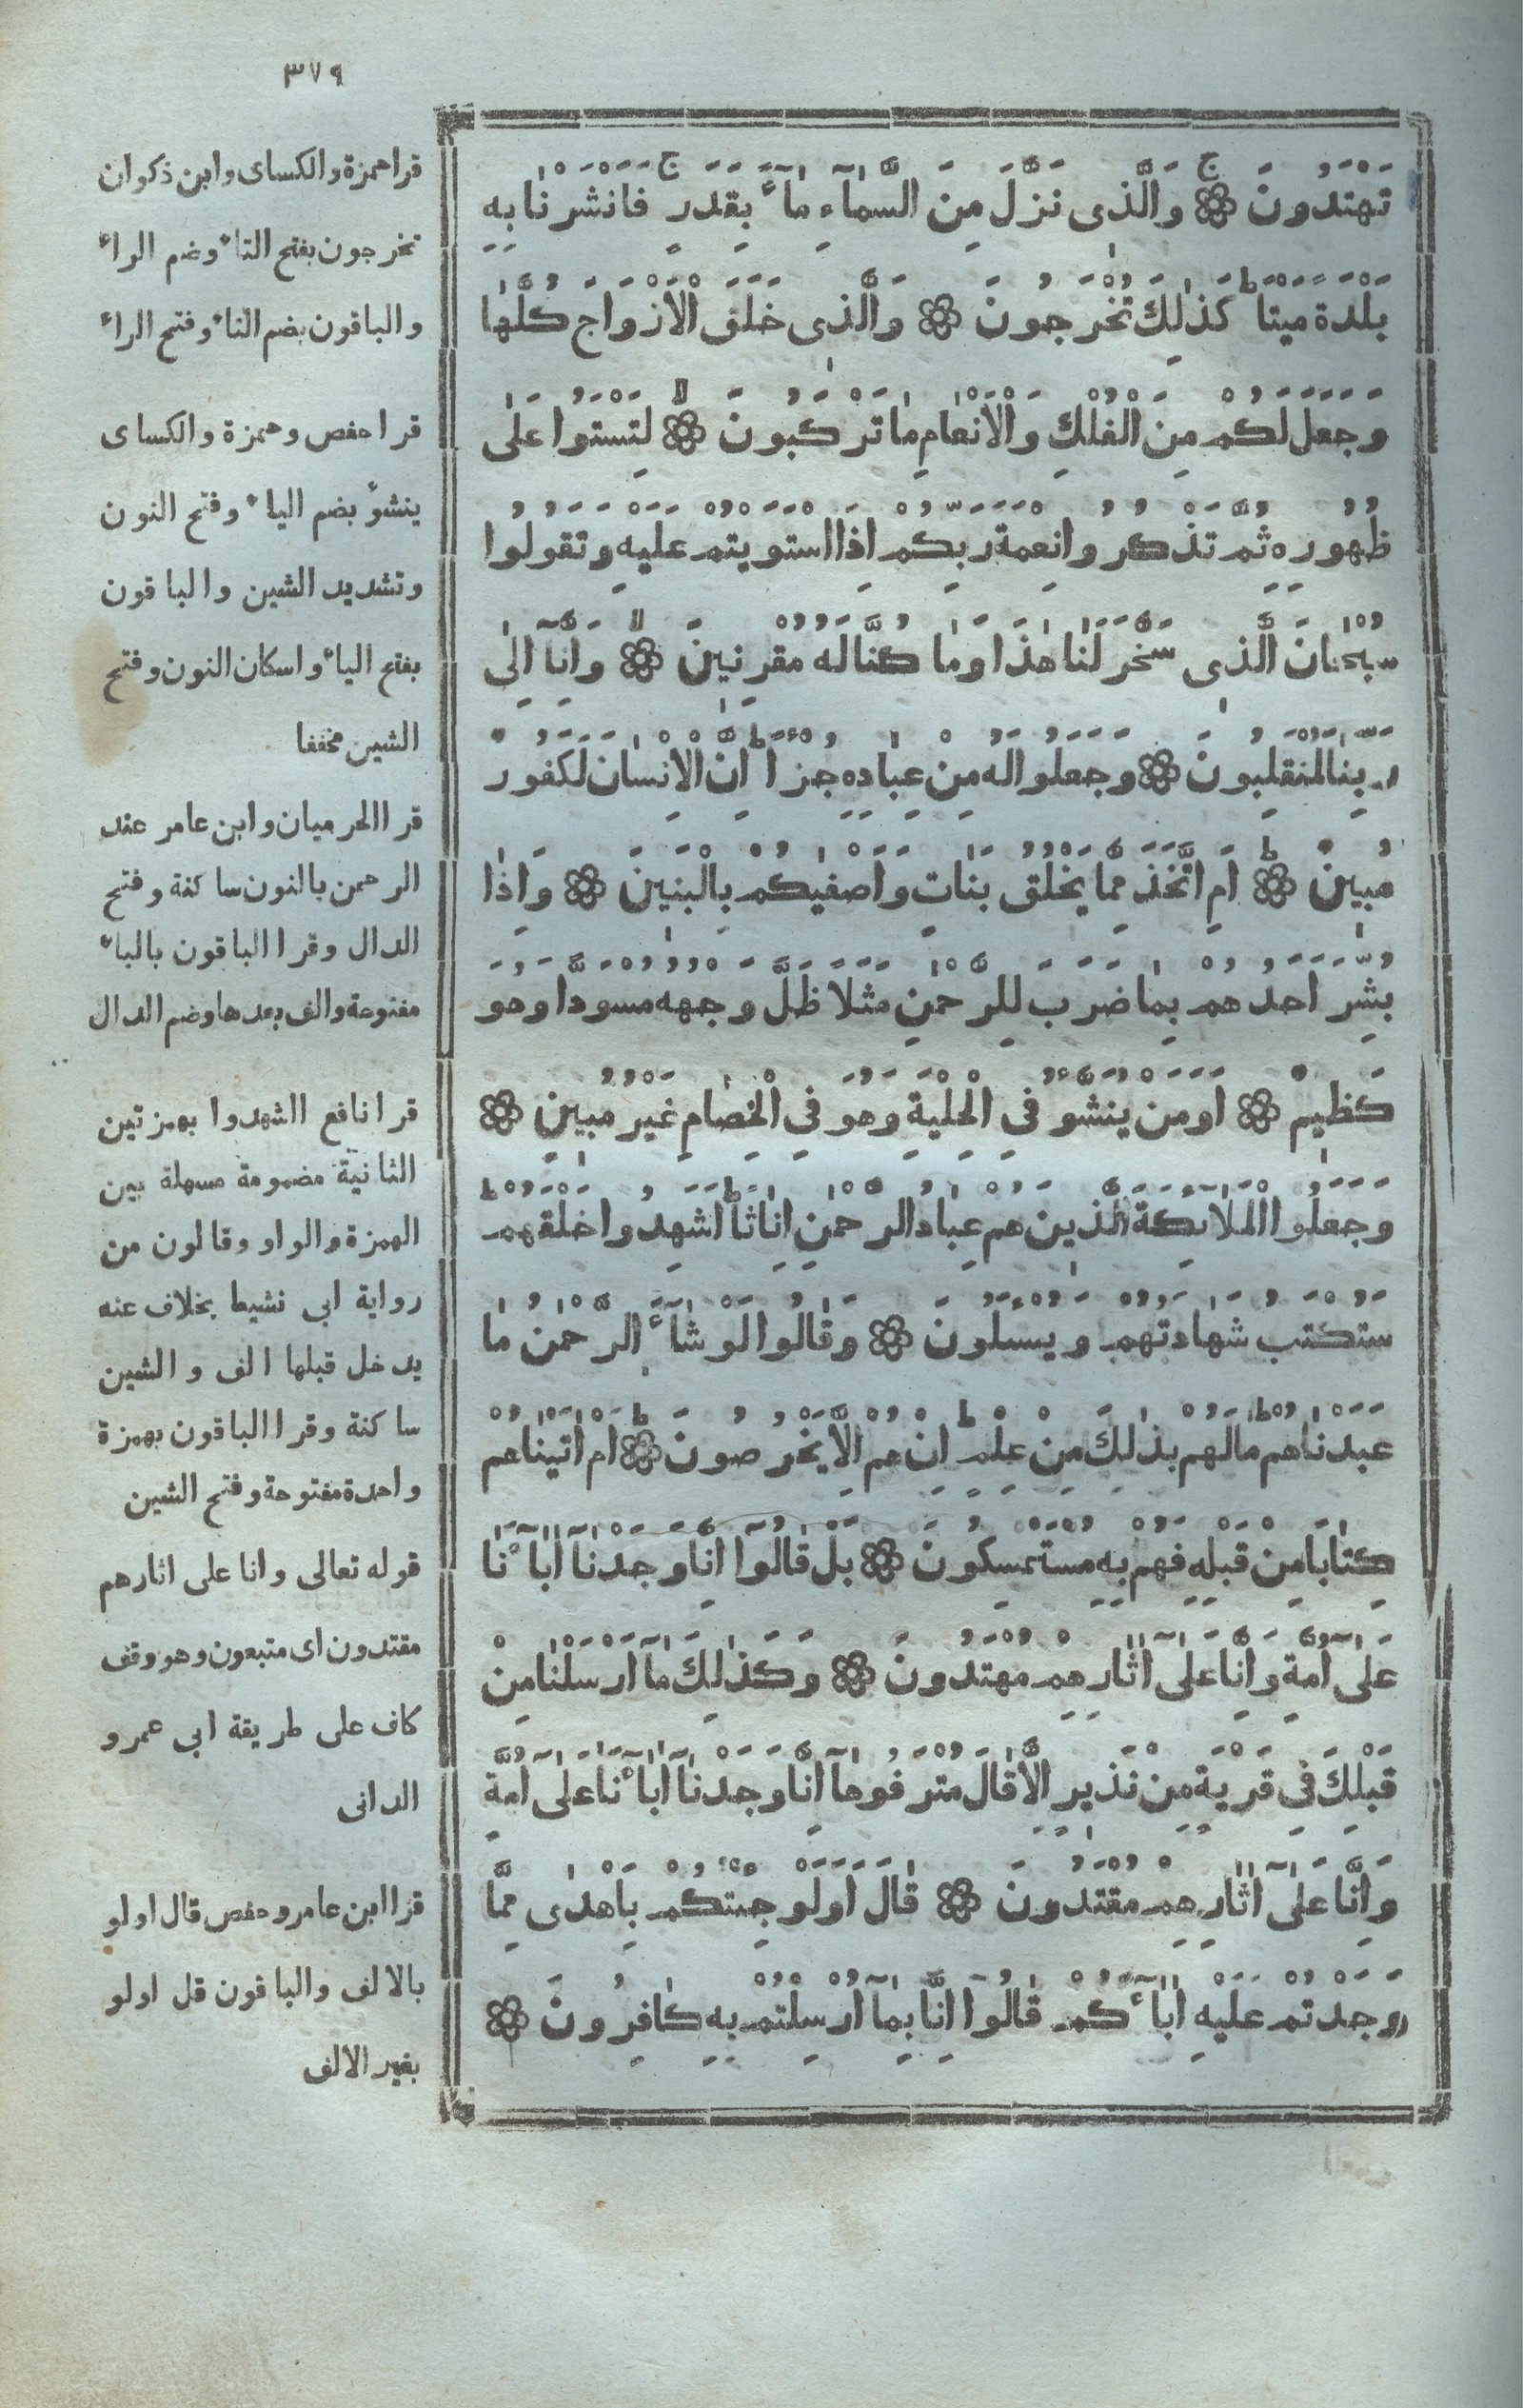 ٣٧٩
تَهْتَدُونَ ۞ ج وَالَّذِى نَزَّلَ مِنَ السَّمَآءِ مَآءً بِقَدَرٍ ج فَاَنْشَرْنَا بِهِ
بَلْدَةً مَيْتًا ط كَذٰلِكَ تُخْرَجُونَ ۞ وَالَّذِى خَلَقَ الْاَزْوَاجَ كُلَّهَا
وَجَعَلَ لَكُمْ مِنَ الْفُلْكِ وَالْاَنْعَامِ مَا تَرْكَبُونَ ۞ لا لِتَسْتَوُا عَلٰى
ظُهُورِهِ ثُمَّ تَذْكُرُوا نِعْمَةَ رَبِّكُمْ اِذَا اسْتَوَيْتُمْ عَلَيْهِ وَتَقُولُوا
سُبْحَانَ الَّذِى سَخَّرَ لَنَا هٰذَا وَمَا كُنَّا لَهُ مُقْرِنِينَ ۞ لا وَاِنَّآ اِلٰى
رَبِّنَا لَمُنْقَلِبُونَ ۞ وَجَعَلُوا لَهُ مِنْ عِبَادِهِ جُزْءًا ط اِنَّ الْاِنْسَانَ لَكَفُورٌ
مُبِينٌ ۞ ط اَمِ اتَّخَذَ مِمَّا يَخْلُقُ بَنَاتٍ وَاَصْفٰيكُمْ بِالْبَنِينَ ۞ وَاِذَا
بُشِّرَ اَحَدُهُمْ بِمَا ضَرَبَ لِلرَّحْمٰنِ مَثَلًا ظَلَّ وَجْهُهُ مُسْوَدًّا وَهُوَ
كَظِيمٌ ۞ اَوَمَنْ يُنَشَّؤُ فِى الْحِلْيَةِ وَهُوَ فِى الْخِصَامِ غَيْرُ مُبِينٍ ۞
وَجَعَلُوا الْمَلَآئِكَةَ الَّذِينَ هُمْ عِبَادُ الرَّحْمٰنِ اِنَاثًا ط اَشَهِدُوا خَلْقَهُمْ ط
سَتُكْتَبُ شَهَادَتُهُمْ وَيُسْئَلُونَ ۞ وَقَالُوا لَوْ شَآءَ الرَّحْمٰنُ مَا
عَبَدْنَاهُمْ مَا لَهُمْ بِذٰلِكَ مِنْ عِلْمٍ ط اِنْ هُمْ اِلَّا يَخْرُصُونَ ۞ ط اَمْ اٰتَيْنَاهُمْ
كِتَابًا مِنْ قَبْلِهِ فَهُمْ بِهِ مُسْتَمْسِكُونَ ۞ بَلْ قَالُوآ اِنَّا وَجَدْنَآ اٰبَآءَنَا
عَلٰٓى اُمَّةٍ وَاِنَّا عَلٰٓى اٰثَارِهِمْ مُهْتَدُونَ ۞ وَكَذٰلِكَ مَآ اَرْسَلْنَا مِنْ
قَبْلِكَ فِى قَرْيَةٍ مِنْ نَذِيرٍ اِلَّا قَالَ مُتْرَفُوهَآ اِنَّا وَجَدْنَآ اٰبَآءَنَا عَلٰٓى اُمَّةٍ
وَاِنَّا عَلٰٓى اٰثَارِهِمْ مُقْتَدُونَ ۞ قَالَ اَوَلَوْ جِئْتُكُمْ بِاَهْدٰى مِمَّا
وَجَدْتُمْ عَلَيْهِ اٰبَآءَكُمْ قَالُوآ اِنَّا بِمَآ اُرْسِلْتُمْ بِهِ كَافِرُونَ ۞
قرا حمزة والكساى وابن ذكوان
تخرجون بفتح التاء وضم الراء
والباقون بضم التاء وفتح الراء
قرا حفص وحمزة والكساى
ينشؤ بضم الياء وفتح النون
وتشديد الشين والباقون
بفتح الياء واسكان النون وفتح
الشين مخففا
قرا الحرميان وابن عامر عند
الرحمن بالنون ساكنة وفتح
الدال وقرا الباقون بالباء
مفتوحة والف بعدها وضم الدال
قرا نافع اشهدوا بهمزتين
الثانية مضمومة مسهلة بين
الهمزة والواو وقالون من
رواية ابى نشيط بخلاف عنه
يدخل قبلها الف والشين
ساكنة وقرا الباقون بهمزة
واحدة مفتوحة وفتح الشين
قوله تعالى وانا على اثارهم
مقتدون اى متبعون وهو وقف
كاف على طريقة ابى عمرو
الدانى
قرا ابن عامر وحفص قال اولو
بالالف والباقون قل اولو
بغير الالف